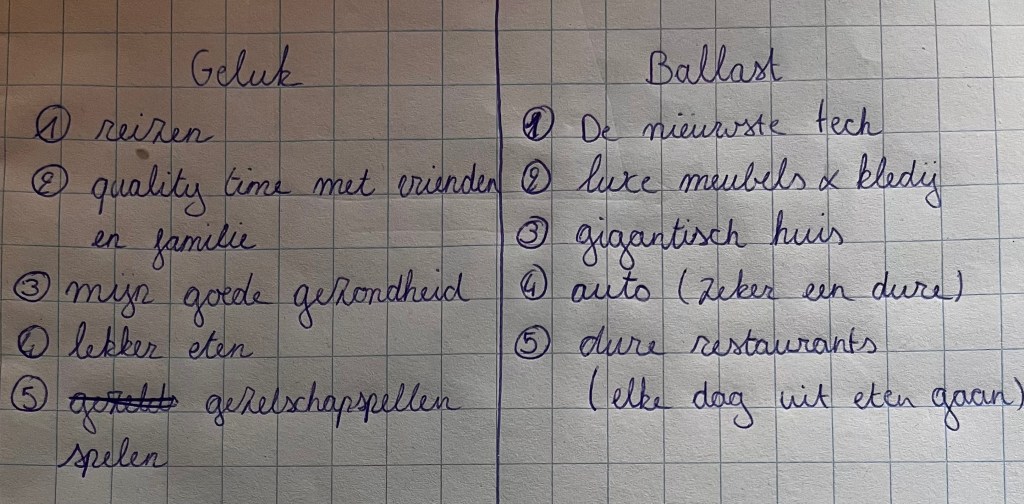 Geluk
① reizen
② quality time met vrienden
en familie
③ mijn goede gezondheid
④ lekker eten
⑤ gezelschapspellen
spelen
Ballast
① De nieuwste tech
② luxe meubels & kledij
③ gigantisch huis
④ auto (zeker een dure)
⑤ dure restaurants
(elke dag uit eten gaan)